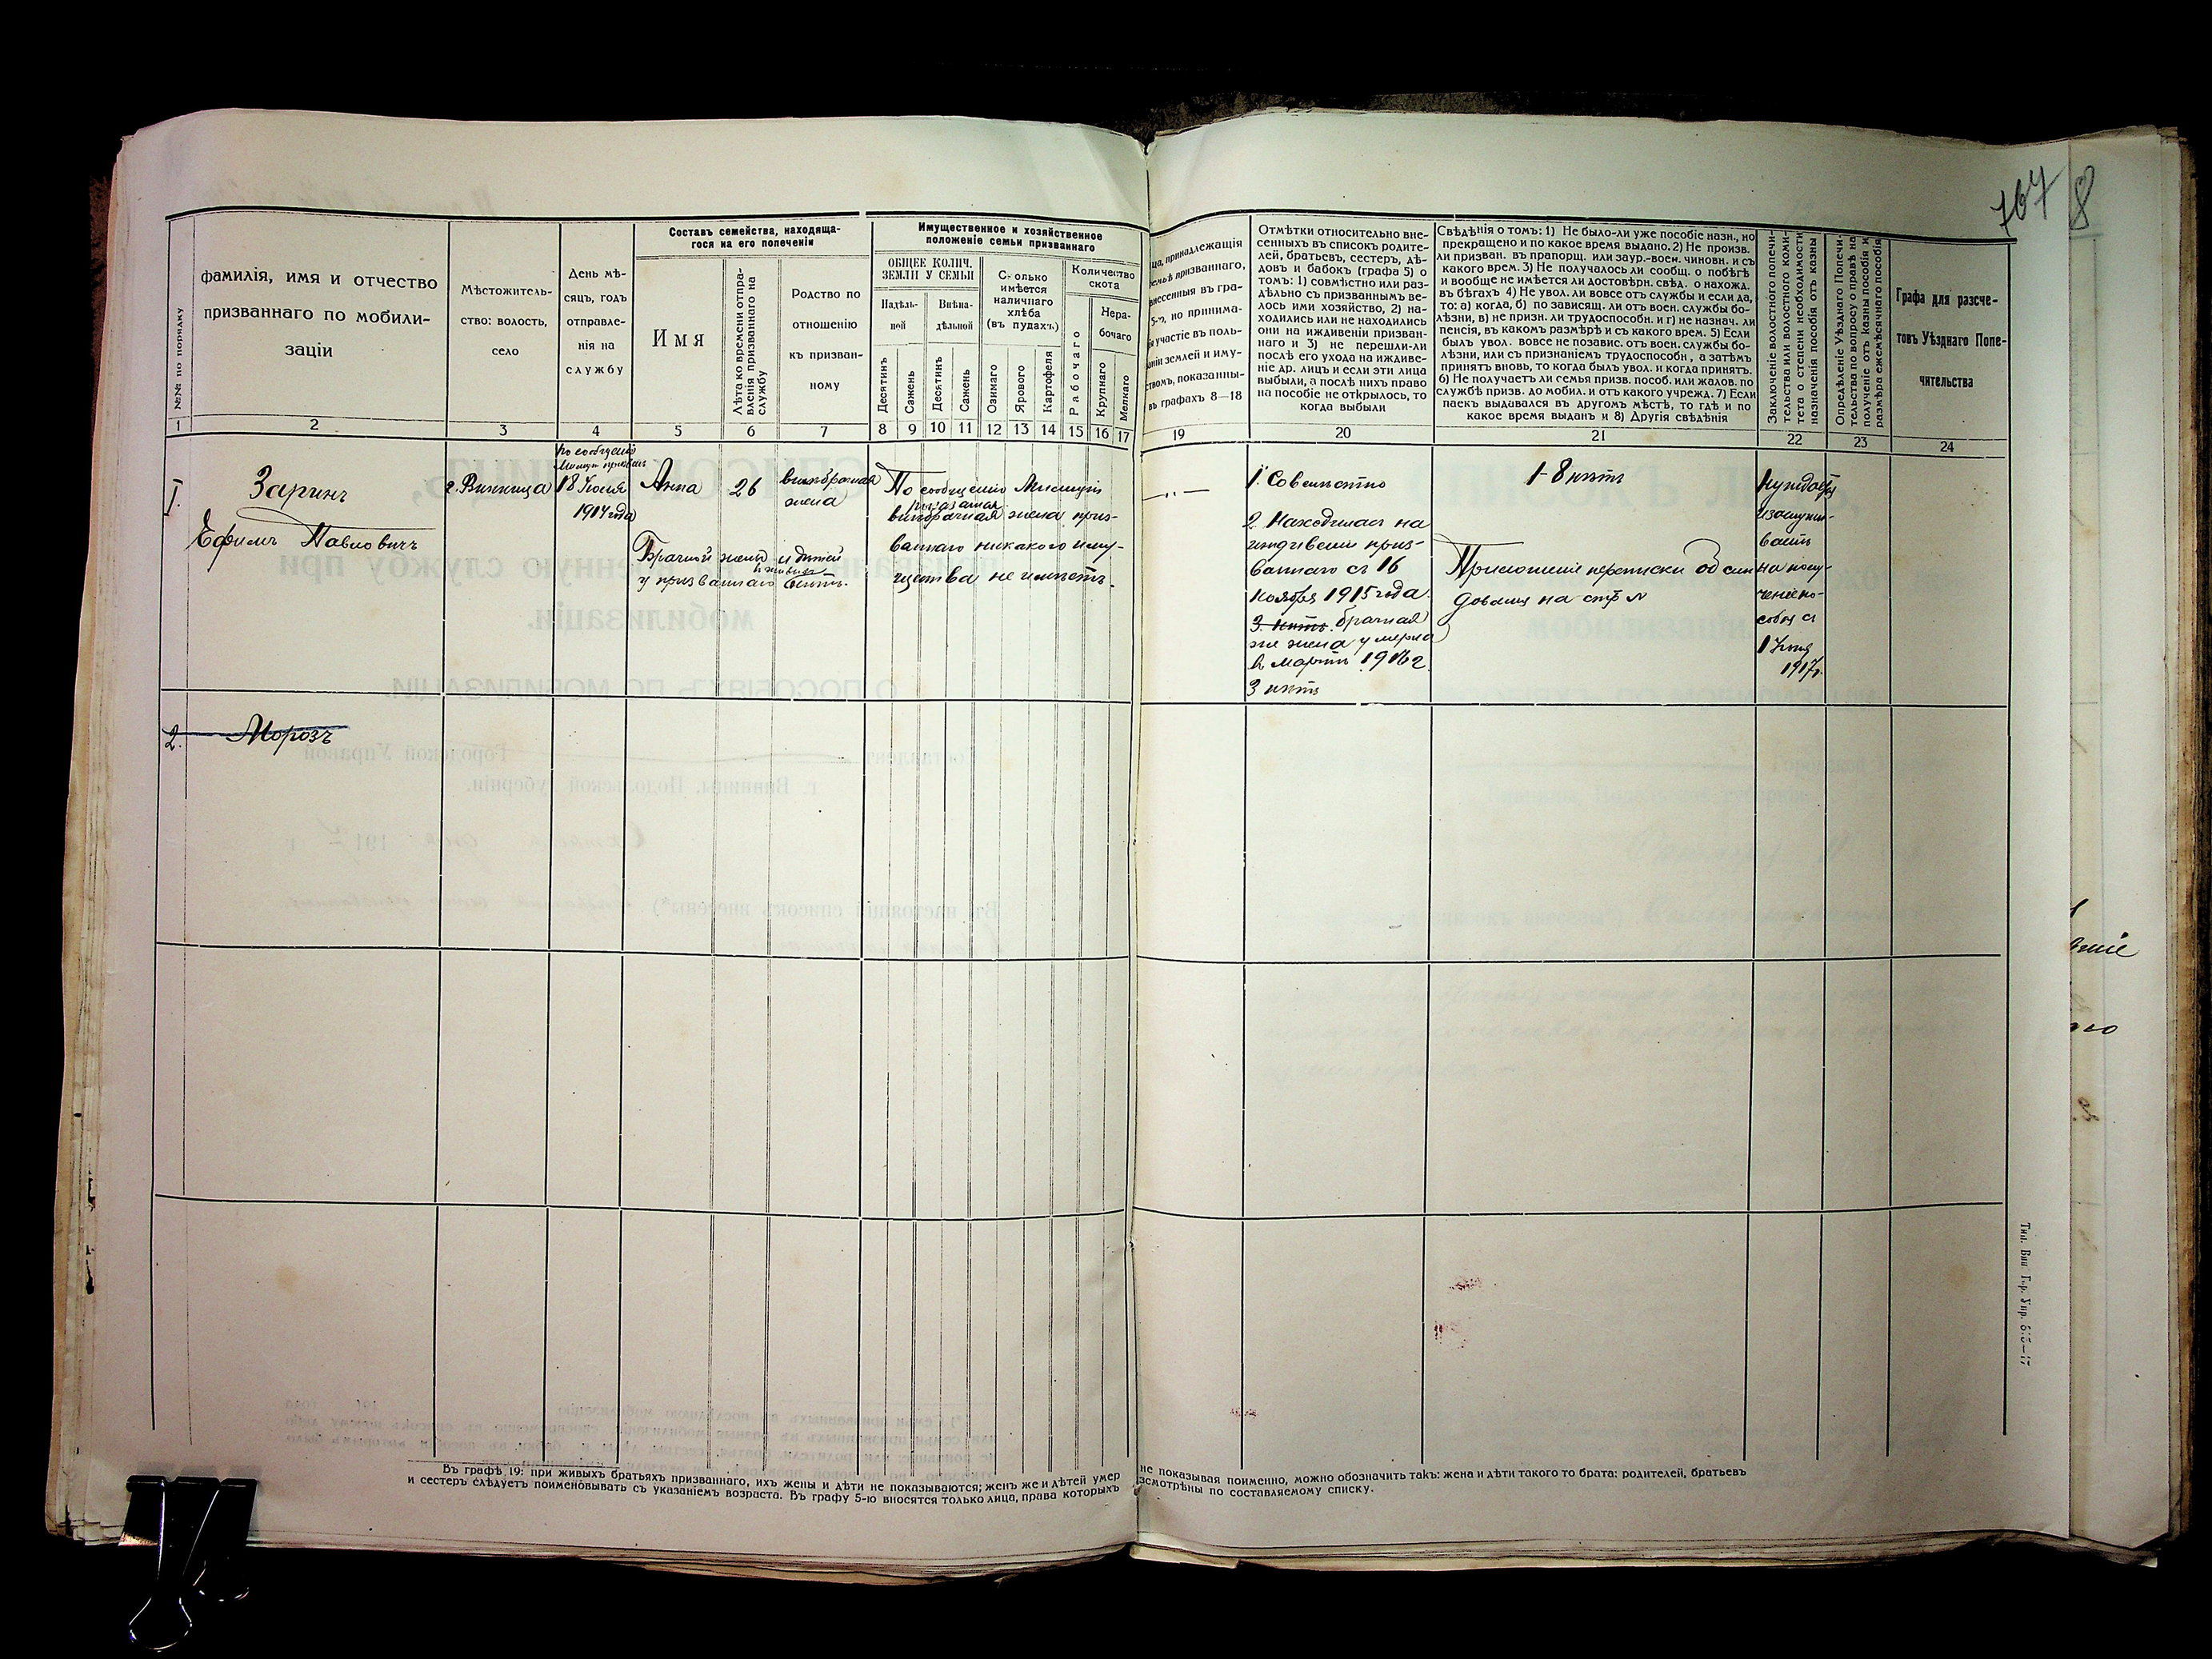 767 8
№№ по порядку
фамилія, имя и отчество
призваннаго по мобили-
заціи
Мѣстожитель-
ство: волость,
село
День мѣ-
сяцъ, годъ
отправле-
нія на
службу
Составъ семейства, находяща-
гося на его попеченіи
Имя
Лѣта ко времени отпра-
вленія призваннаго на
службу
Родство по
отношенію
къ призван-
ному
Имущественное и хозяйственное
положеніе семьи призваннаго
ОБЩЕЕ КОЛИЧ.
ЗЕМЛИ У СЕМЬИ
Надѣль-
ной
Внѣна-
дѣльной
Десятинъ
Сажень
Десятинъ
Сажень
Сколько
имѣется
наличнаго
хлѣба
(въ пудахъ)
Озимаго
Ярового
Картофеля
Количество
скота
Рабочаго
Нера-
бочаго
Крупнаго
Мелкаго
ца, принадлежащія
семьѣ призваннаго,
внесенныя въ гра-
5-ю, но принима-
участіе въ поль-
ваніи землей и иму-
ствомъ, показанны-
въ графахъ 8—18
Отмѣтки относительно вне-
сенныхъ въ списокъ родите-
лей, братьевъ, сестеръ, дѣ-
довъ и бабокъ (графа 5) о
томъ: 1) совмѣстно или раз-
дѣльно съ призваннымъ ве-
лось ими хозяйство, 2) на-
ходились или не находились
они на иждивеніи призван-
наго и 3) не перешли-ли
послѣ его ухода на иждиве-
ніе др. лицъ и если эти лица
выбыли, а послѣ нихъ право
на пособіе не открылось, то
когда выбыли
Свѣдѣнія о томъ: 1) Не было-ли уже пособіе назн., но
прекращено и по какое время выдано. 2) Не произв.
ли призван. въ прапорщ. или заур.-воен. чиновн. и съ
какого врем. 3) Не получалось ли сообщ. о побѣгѣ
и вообще не имѣется ли достовѣрн. свѣд. о нахожд.
въ бѣгахъ 4) Не увол. ли вовсе отъ службы и если да,
то: а) когда, б) по зависящ. ли отъ воен. службы бо-
лѣзни, в) не призн. ли трудоспособн. и г) не назнач. ли
пенсія, въ какомъ размѣрѣ и съ какого врем. 5) Если
былъ увол. вовсе не позавис. отъ воен. службы бо-
лѣзни, или съ признаніемъ трудоспособн, а затѣмъ
принятъ вновь, то когда былъ увол. и когда принятъ.
6) Не получаетъ ли семья призв. пособ. или жалов. по
службѣ призв. до мобил. и отъ какого учрежд. 7) Если
паекъ выдавался въ другомъ мѣстѣ, то гдѣ и по
какое время выданъ и 8) Другія свѣдѣнія
Заключеніе волостного попечи-
тельства или волостного коми-
тета о степени необходимости
назначенія пособія отъ казны
Опредѣленіе Уѣзднаго Попечи-
тельства по вопросу о правѣ на
полученіе отъ казны пособія и
размѣра ежемѣсячнаго пособія
Графа для разсче-
товъ Уѣзднаго Попе-
чительства
1 2 3 4 5 6 7 8 9 10 11 12 13 14 15 16 17 19 20 21 22 23 24
1.
Заринъ
Ефимъ Павловичъ
г. Винница
по сообщенію
18 Іюля
1914 года
Анна
26
внѣбрачная
жена
Брачной жены и дѣтей
у призваннаго нѣтъ.
По сообщенію Милиціи
показанная
внѣбрачная жена приз-
ваннаго никакого иму-
щества не имѣетъ.
— " —
1. Совмѣстно
2. Находилась на
иждивеніи приз-
ваннаго съ 16
Ноября 1915 года.
3. нѣтъ. брачная
же жена умерла
въ Мартѣ 1916 г.
3 нѣтъ
1-8 нѣтъ
Приложеніе переписки
на стр №
заслужи-
ваетъ
на полу-
ченіе по-
собія съ
1 Іюня
1917 г.
2. Морозъ
Въ графѣ 19: при живыхъ братьяхъ призваннаго, ихъ жены и дѣти не показываются; женъ же и дѣтей умер
не показывая поименно, можно обозначить такъ: жена и дѣти такого то брата: родителей, братьевъ
и сестеръ слѣдуетъ поименовывать съ указаніемъ возраста. Въ графу 5-ю вносятся только лица, права которыхъ
зсмотрѣны по составляемому списку.
Тип. Вин Гор. Упр.